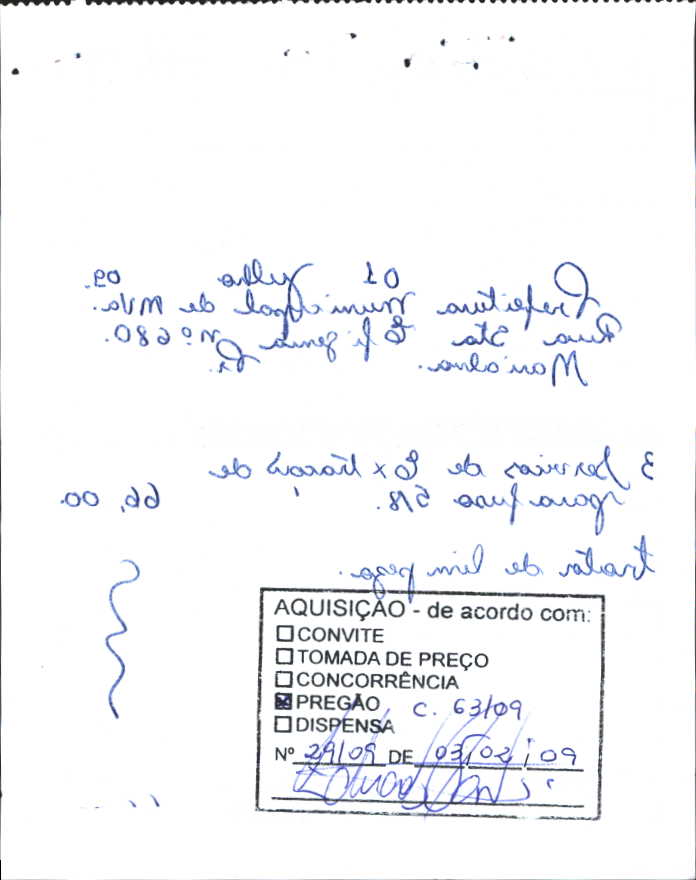 01 Julho 09.
Prefeitura Municipal de MVa.
Rua Sta Efigenia Nº 680.
Marialva. Pr.
3 Servicos de Extracaõ de
parafuso 5/8. 66,00
trator de lim peza.
AQUISIÇÃO - de acordo com:
CONVITE
TOMADA DE PREÇO
CONCORRÊNCIA
PREGÃO C. 63/09
DISPENSA
Nº 29/09 DE 03/02/09